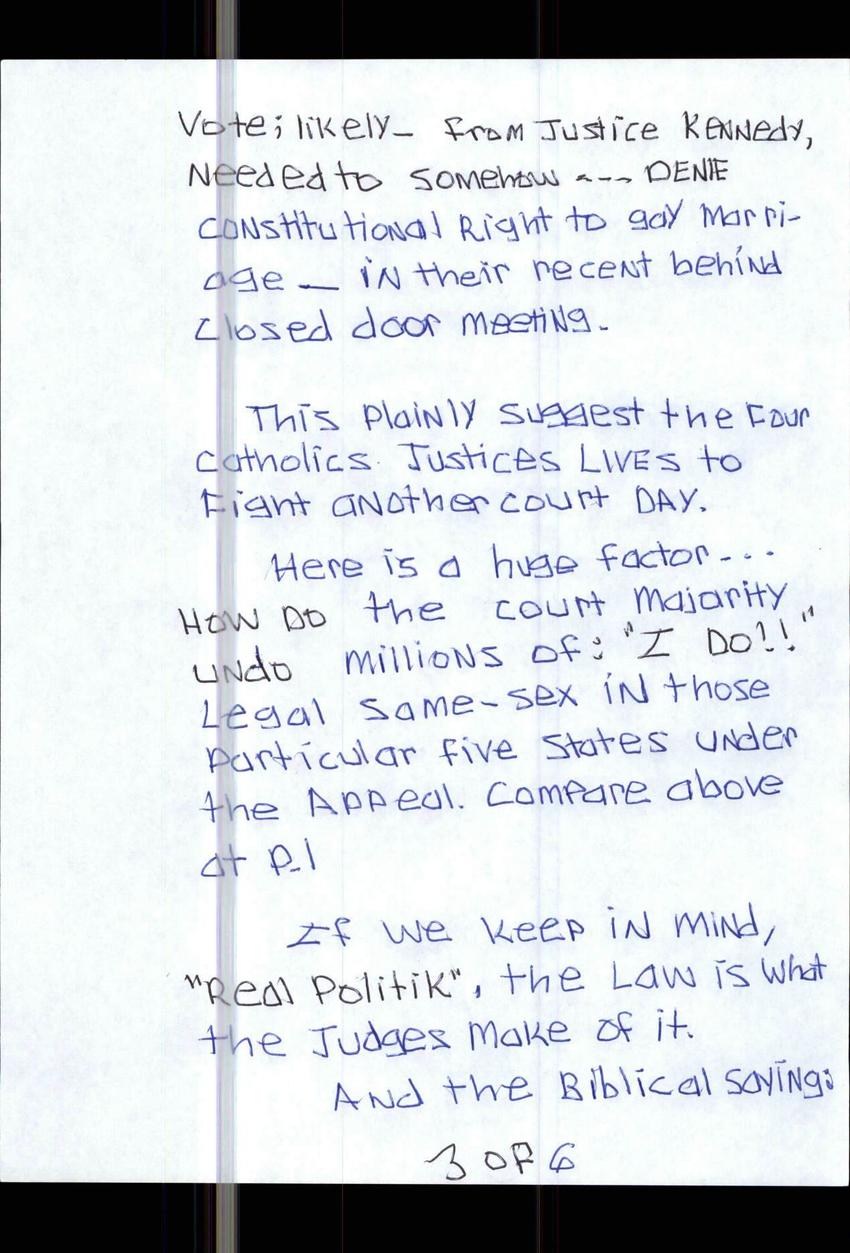 Vote; likely- from Justice Kennedy,
Needed to somehow --- DENIE
constitutional Right to gay Marri-
age — in their recent behind
closed door meeting.
This plainly suggest the Four
Catholics. Justices LIVES to
Fight another court DAY.
Here is a huge factor---
HOW DO the court majority
UNDO millions of: "I DO!!"
Legal same-sex in those
particular five states under
the Appeal. Compare above
at P.1
If we keep in mind,
"Real Politik", the Law is what
the Judges make of it.
And the Biblical saying:
3 OF 6